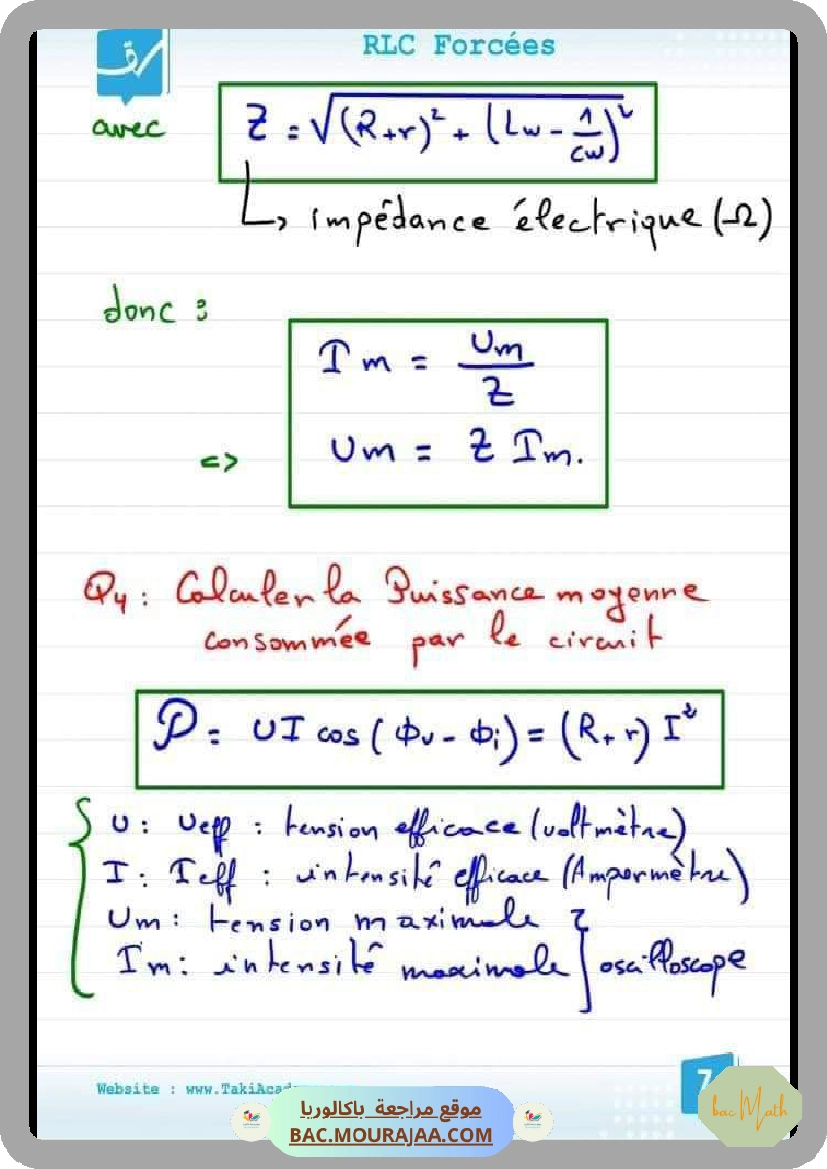 RLC Forcées
avec Z = √(R+r)² + (Lw - 1/cw)²
↳ impédance électrique (Ω)
donc :
Im = Um/Z
<=> Um = Z Im.
Q4 : Calculer la Puissance moyenne
consommée par le circuit
P = UI cos (ϕu - ϕi) = (R+r) I²
U : Ueff : tension efficace (voltmètre)
I : Ieff : intensité efficace (Ampermètre)
Um : tension maximale
Im : intensité maximale } oscilloscope
Website : www.TakiAcad
7
bac Math
موقع مراجعة باكالوريا
BAC.MOURAJAA.COM